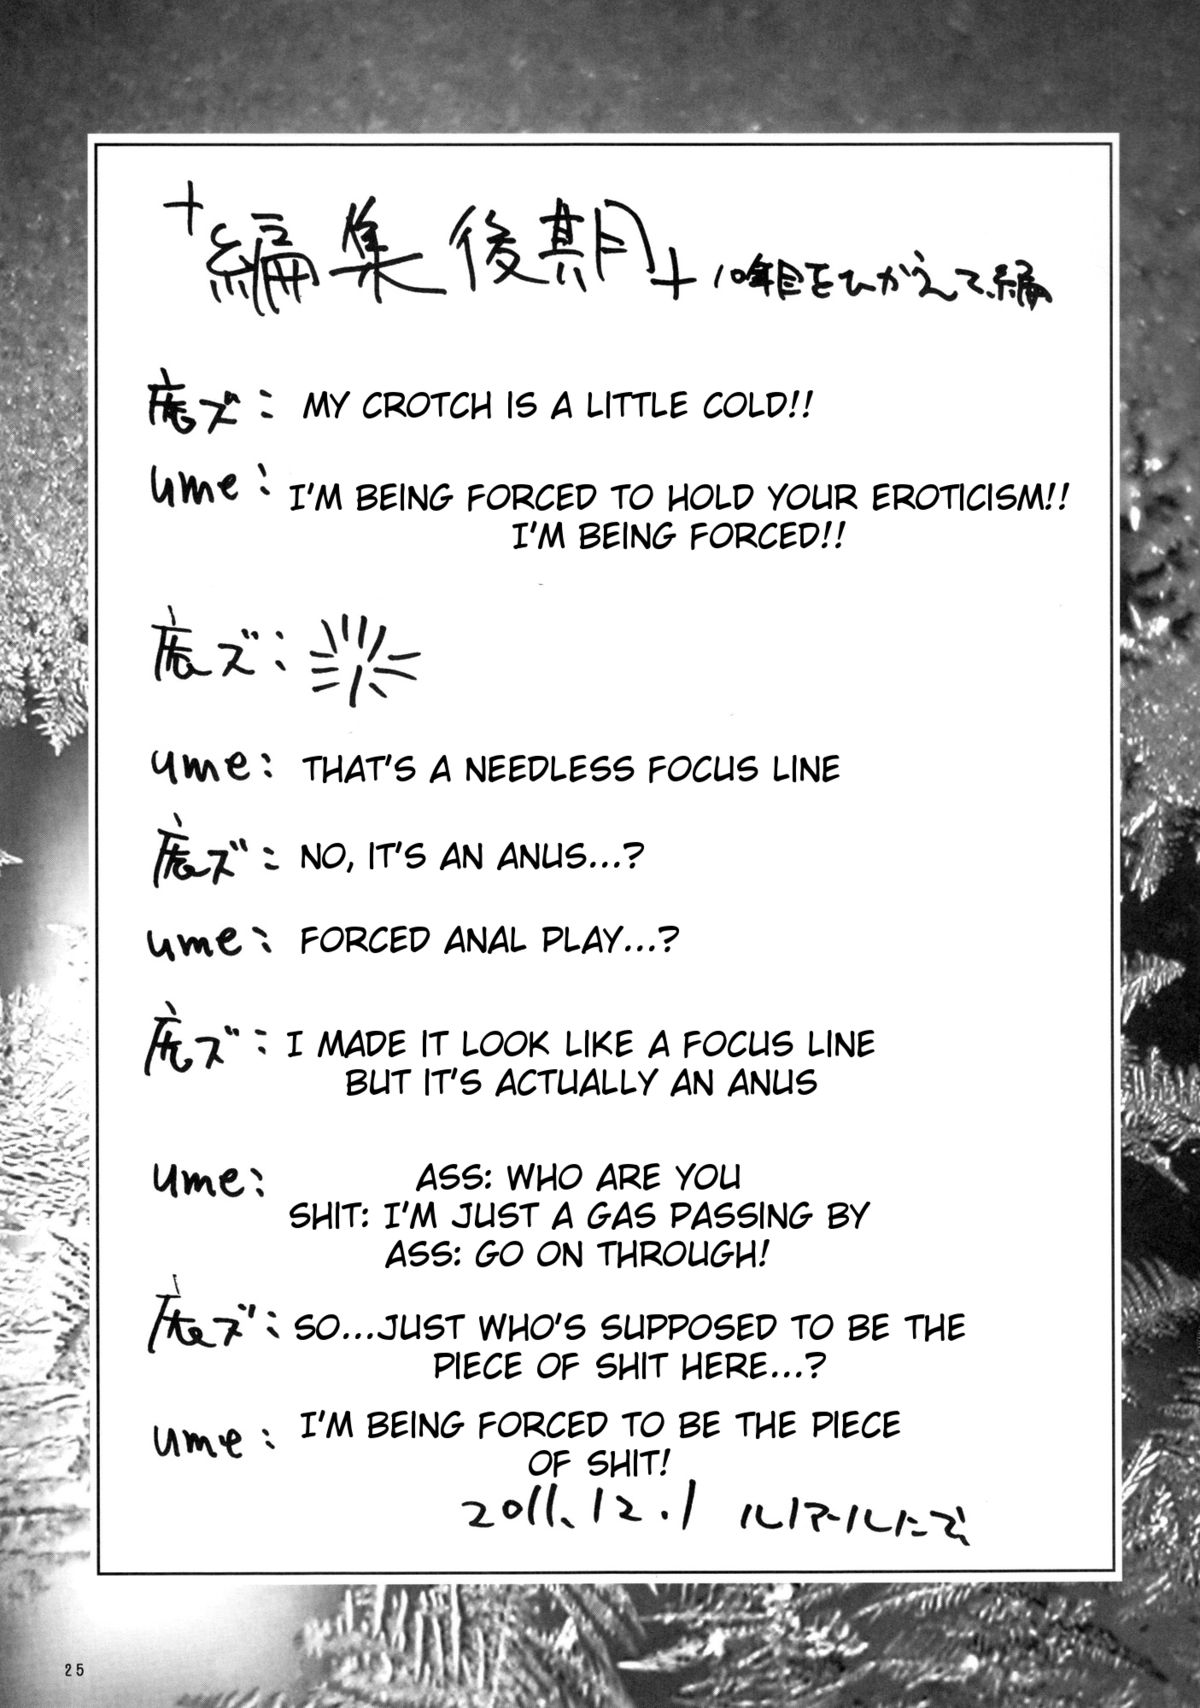 +編集後期+ 10年目をひかえて、編
鹿ズ: MY CROTCH IS A LITTLE COLD!!
ume: I'M BEING FORCED TO HOLD YOUR EROTICISM!!
I'M BEING FORCED!!
ズ:
ume: THAT'S A NEEDLESS FOCUS LINE
ズ: NO, IT'S AN ANUS...?
ume: FORCED ANAL PLAY...?
ズ: I MADE IT LOOK LIKE A FOCUS LINE
BUT IT'S ACTUALLY AN ANUS
ume: ASS: WHO ARE YOU
SHIT: I'M JUST A GAS PASSING BY
ASS: GO ON THROUGH!
ズ: SO...JUST WHO'S SUPPOSED TO BE THE
PIECE OF SHIT HERE...?
ume: I'M BEING FORCED TO BE THE PIECE
OF SHIT!
2011.12.1 ルノアールにて、
25